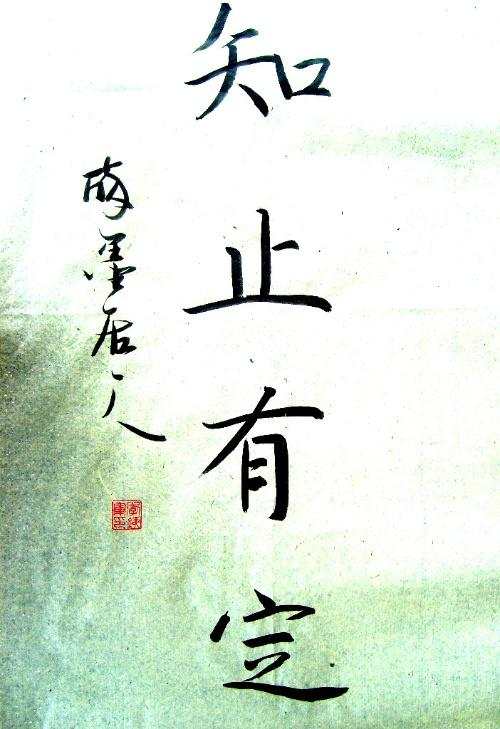 知止有定
墨居人